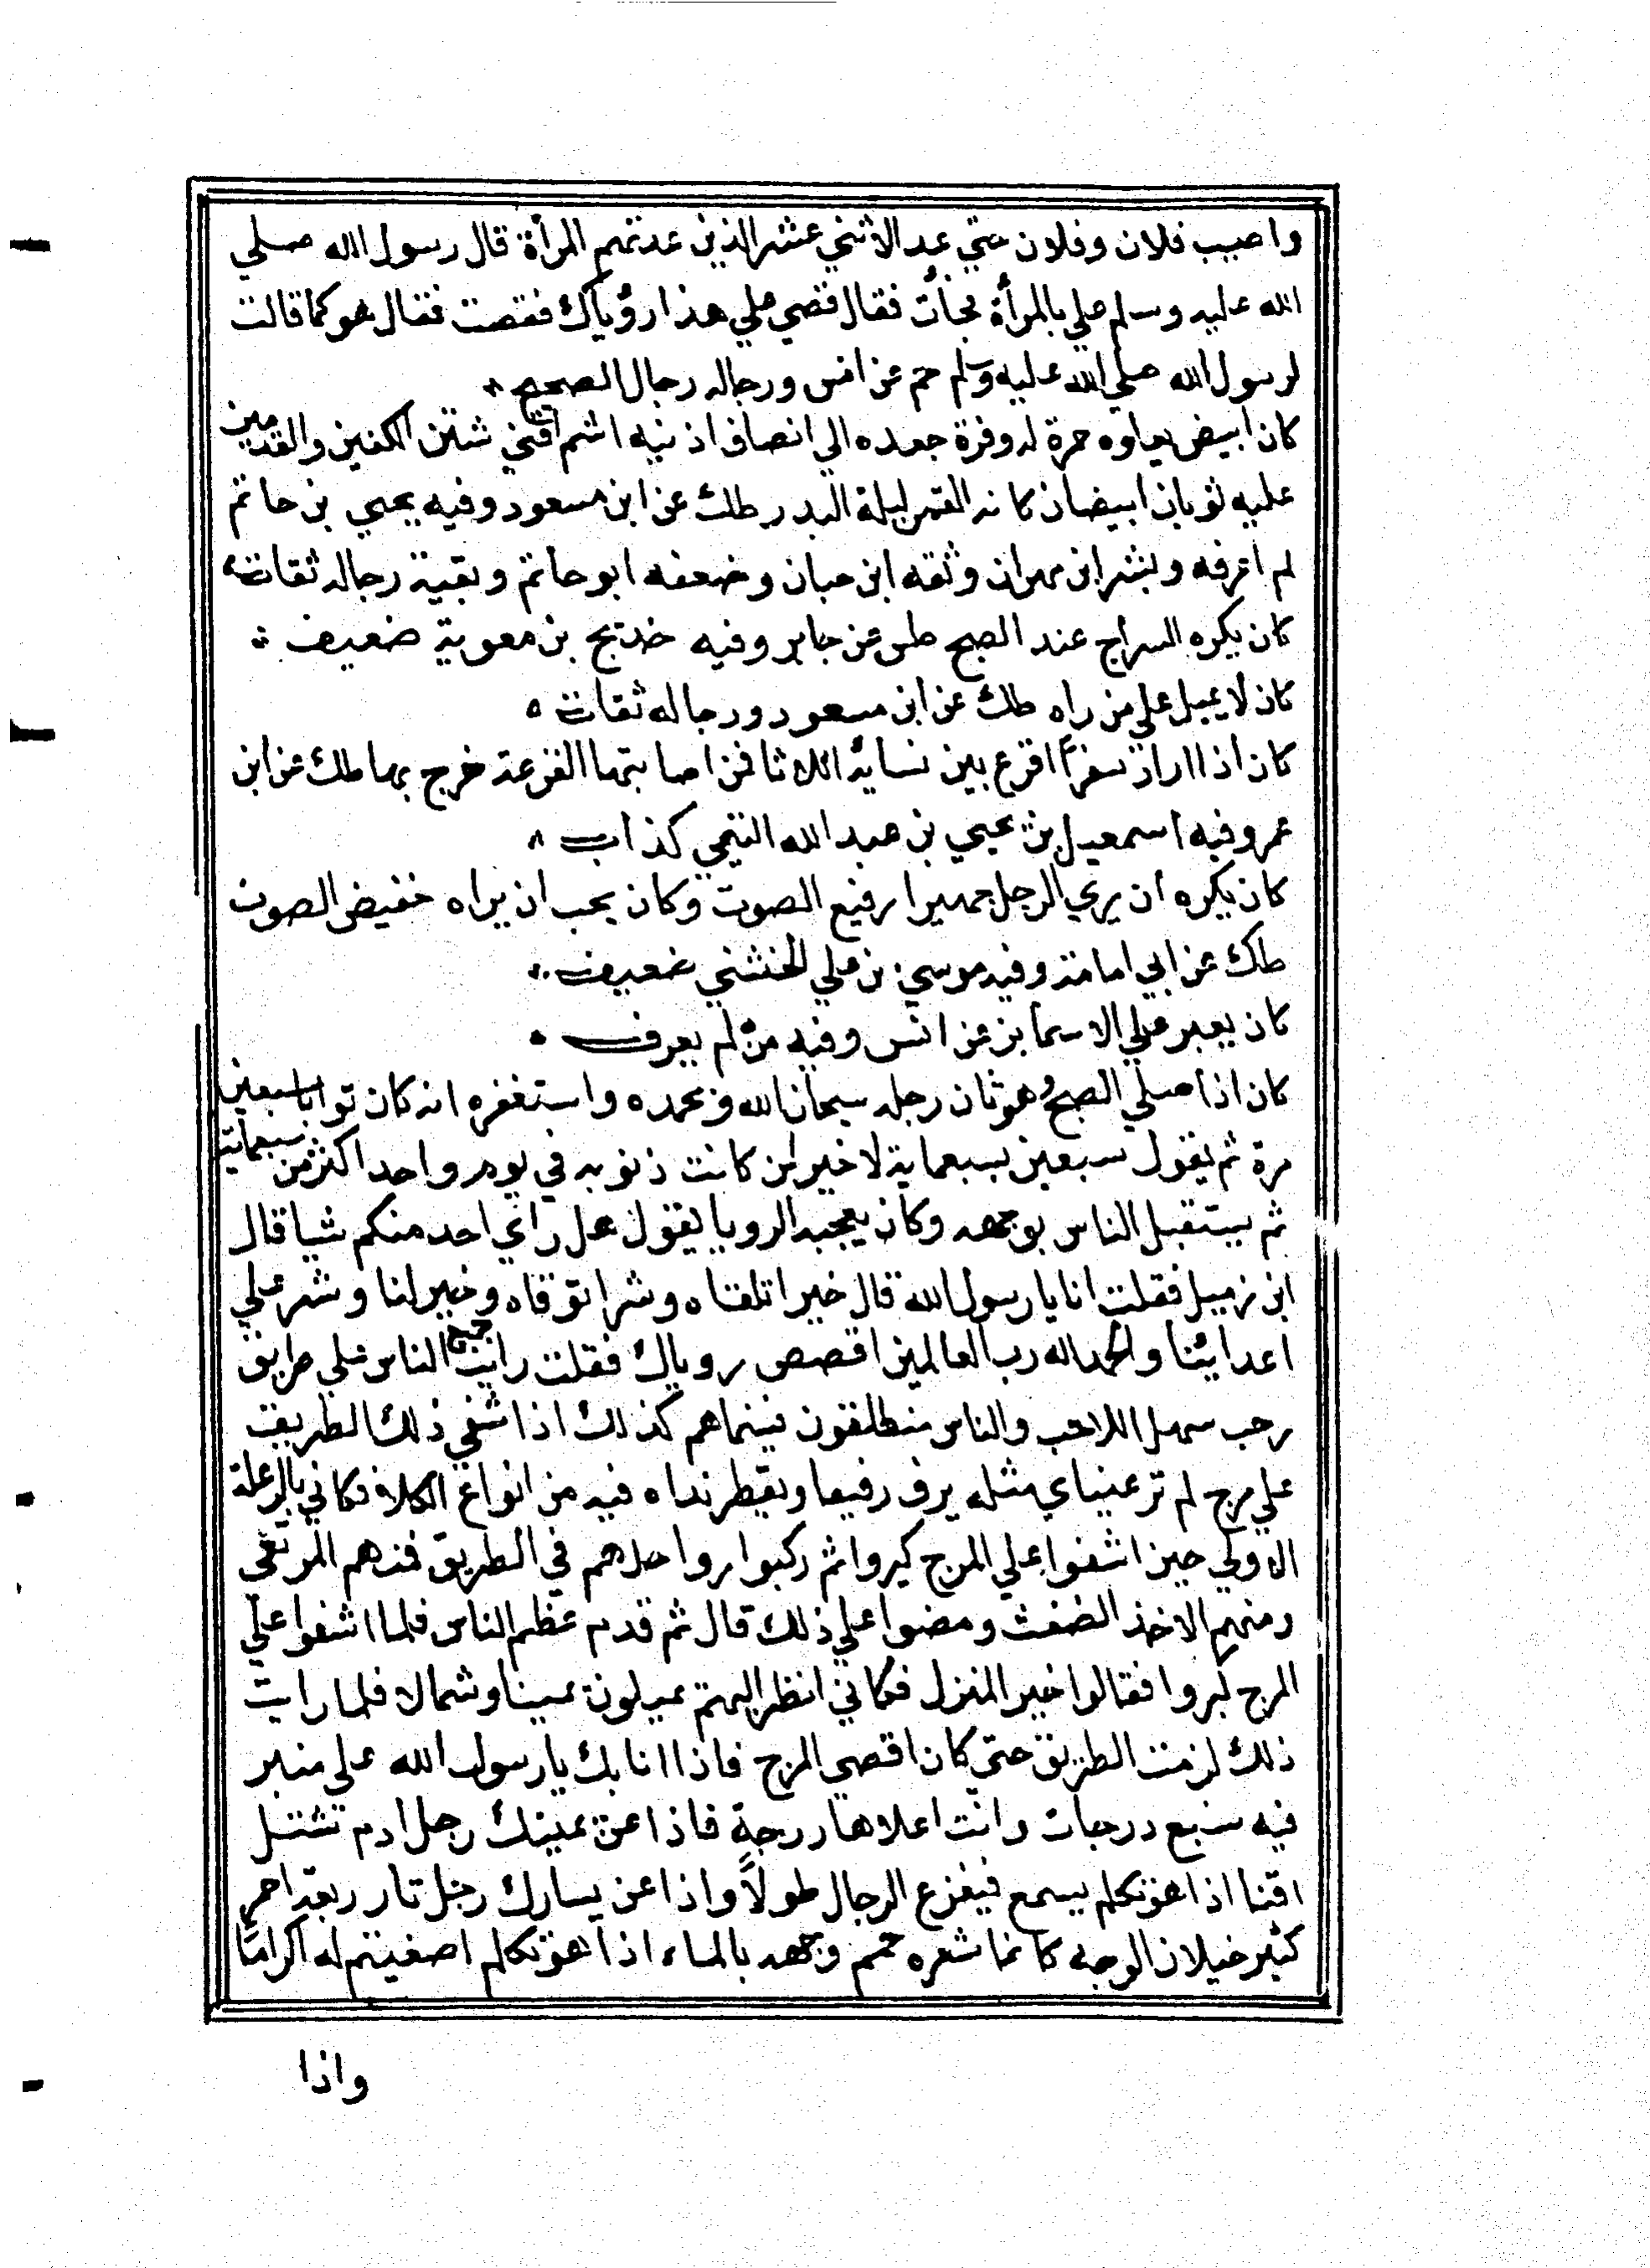 واصيب فلان وفلان حتي عد الاثني عشر الذين عدتهم المرأة قال رسول الله صلي
الله عليه وسلم علي بالمرأة فجأت فقال قصي علي هذا رؤياك فقصت فقال هو كما قالت
لرسول الله صلي الله عليه وسلم حم عن انس ورجاله رجال الصحيح
كان ابيض يعلوه حمرة له وفرة جعده الي انصاف اذنيه اشم اقني شثن الكفين والقدمين
عليه ثوبان ابيضان كانه القمر ليلة البدر طك عن ابن مسعود وفيه يحيي بن حاتم
لم اعرفه وبشر ابن مهران وثقه ابن حبان وضعفه ابو حاتم وبقية رجاله ثقات
كان يكره السراج عند الصبح طس عن جابر وفيه خديج بن معوية ضعيف
كان لا يميل علي من راه طك عن ابن مسعود ورجاله ثقات
كان اذا اراد سفرا اقرع بين نسايه اثلاثا فمن اصابتها القرعة خرج بها طك عن ابن
عمر وفيه اسمعيل بن يحيي بن عبد الله التيمي كذاب
كان يكره ان يري الرجل جهيرا رفيع الصوت وكان يحب ان يراه خفيض الصوت
طك عن ابي امامة وفيه موسي بن علي الخشني ضعيف
كان يعبر علي الاسما بز عن انس وفيه من لم يعرف
كان اذا صلي الصبح وهو ثان رجله سبحان الله وبحمده واستغفره انه كان توابا سبعين
مرة ثم يقول سبعين بسبعماية لا خير لمن كانت ذنوبه في يوم واحد اكثر من سبعماية
ثم يستقبل الناس بوجهه وكان يعجبه الرويا يقول هل راي احد منكم شيا قال
ابن زميل فقلت انا يا رسول الله قال خيرا تلقاه وشرا توقاه وخير لنا وشر علي
اعدائنا والحمد لله رب العالمين اقصص روياك فقلت رايت جميع الناس علي طريق
رحب سهل اللاحب والناس منطلقون فبينماهم كذلك اذا شفي ذلك الطريق
علي مرج لم تر عيناي مثله يرف رفيفا ويقطر نداه فيه من انواع الكلا فكاني بالرعلة
الاولي حين اشفوا علي المرج كبروا ثم ركبوا رواحلهم في الطريق فمنهم المرتقي
ومنهم الاخذ الضغث ومضوا علي ذلك قال ثم قدم عظم الناس فلما اشفوا علي
المرج كبروا فقالوا خير المنزل فكاني انظر اليهم يميلون يمينا وشمالا فلما رايت
ذلك لزمت الطريق حتي كان اقصي المرج فاذا انا بك يا رسول الله علي منبر
فيه سبع درجات وانت اعلاها درجة فاذا عن يمينك رجل ادم تشتل
اقنا اذا هو تكلم يسمع فيفزع الرجال طولا واذا عن يسارك رجل تار ربعة احمر
كثير خيلان الوجه كانما شعره حمم وجهه بالماء اذا هو تكلم اصغيتم له اكراما
واذا